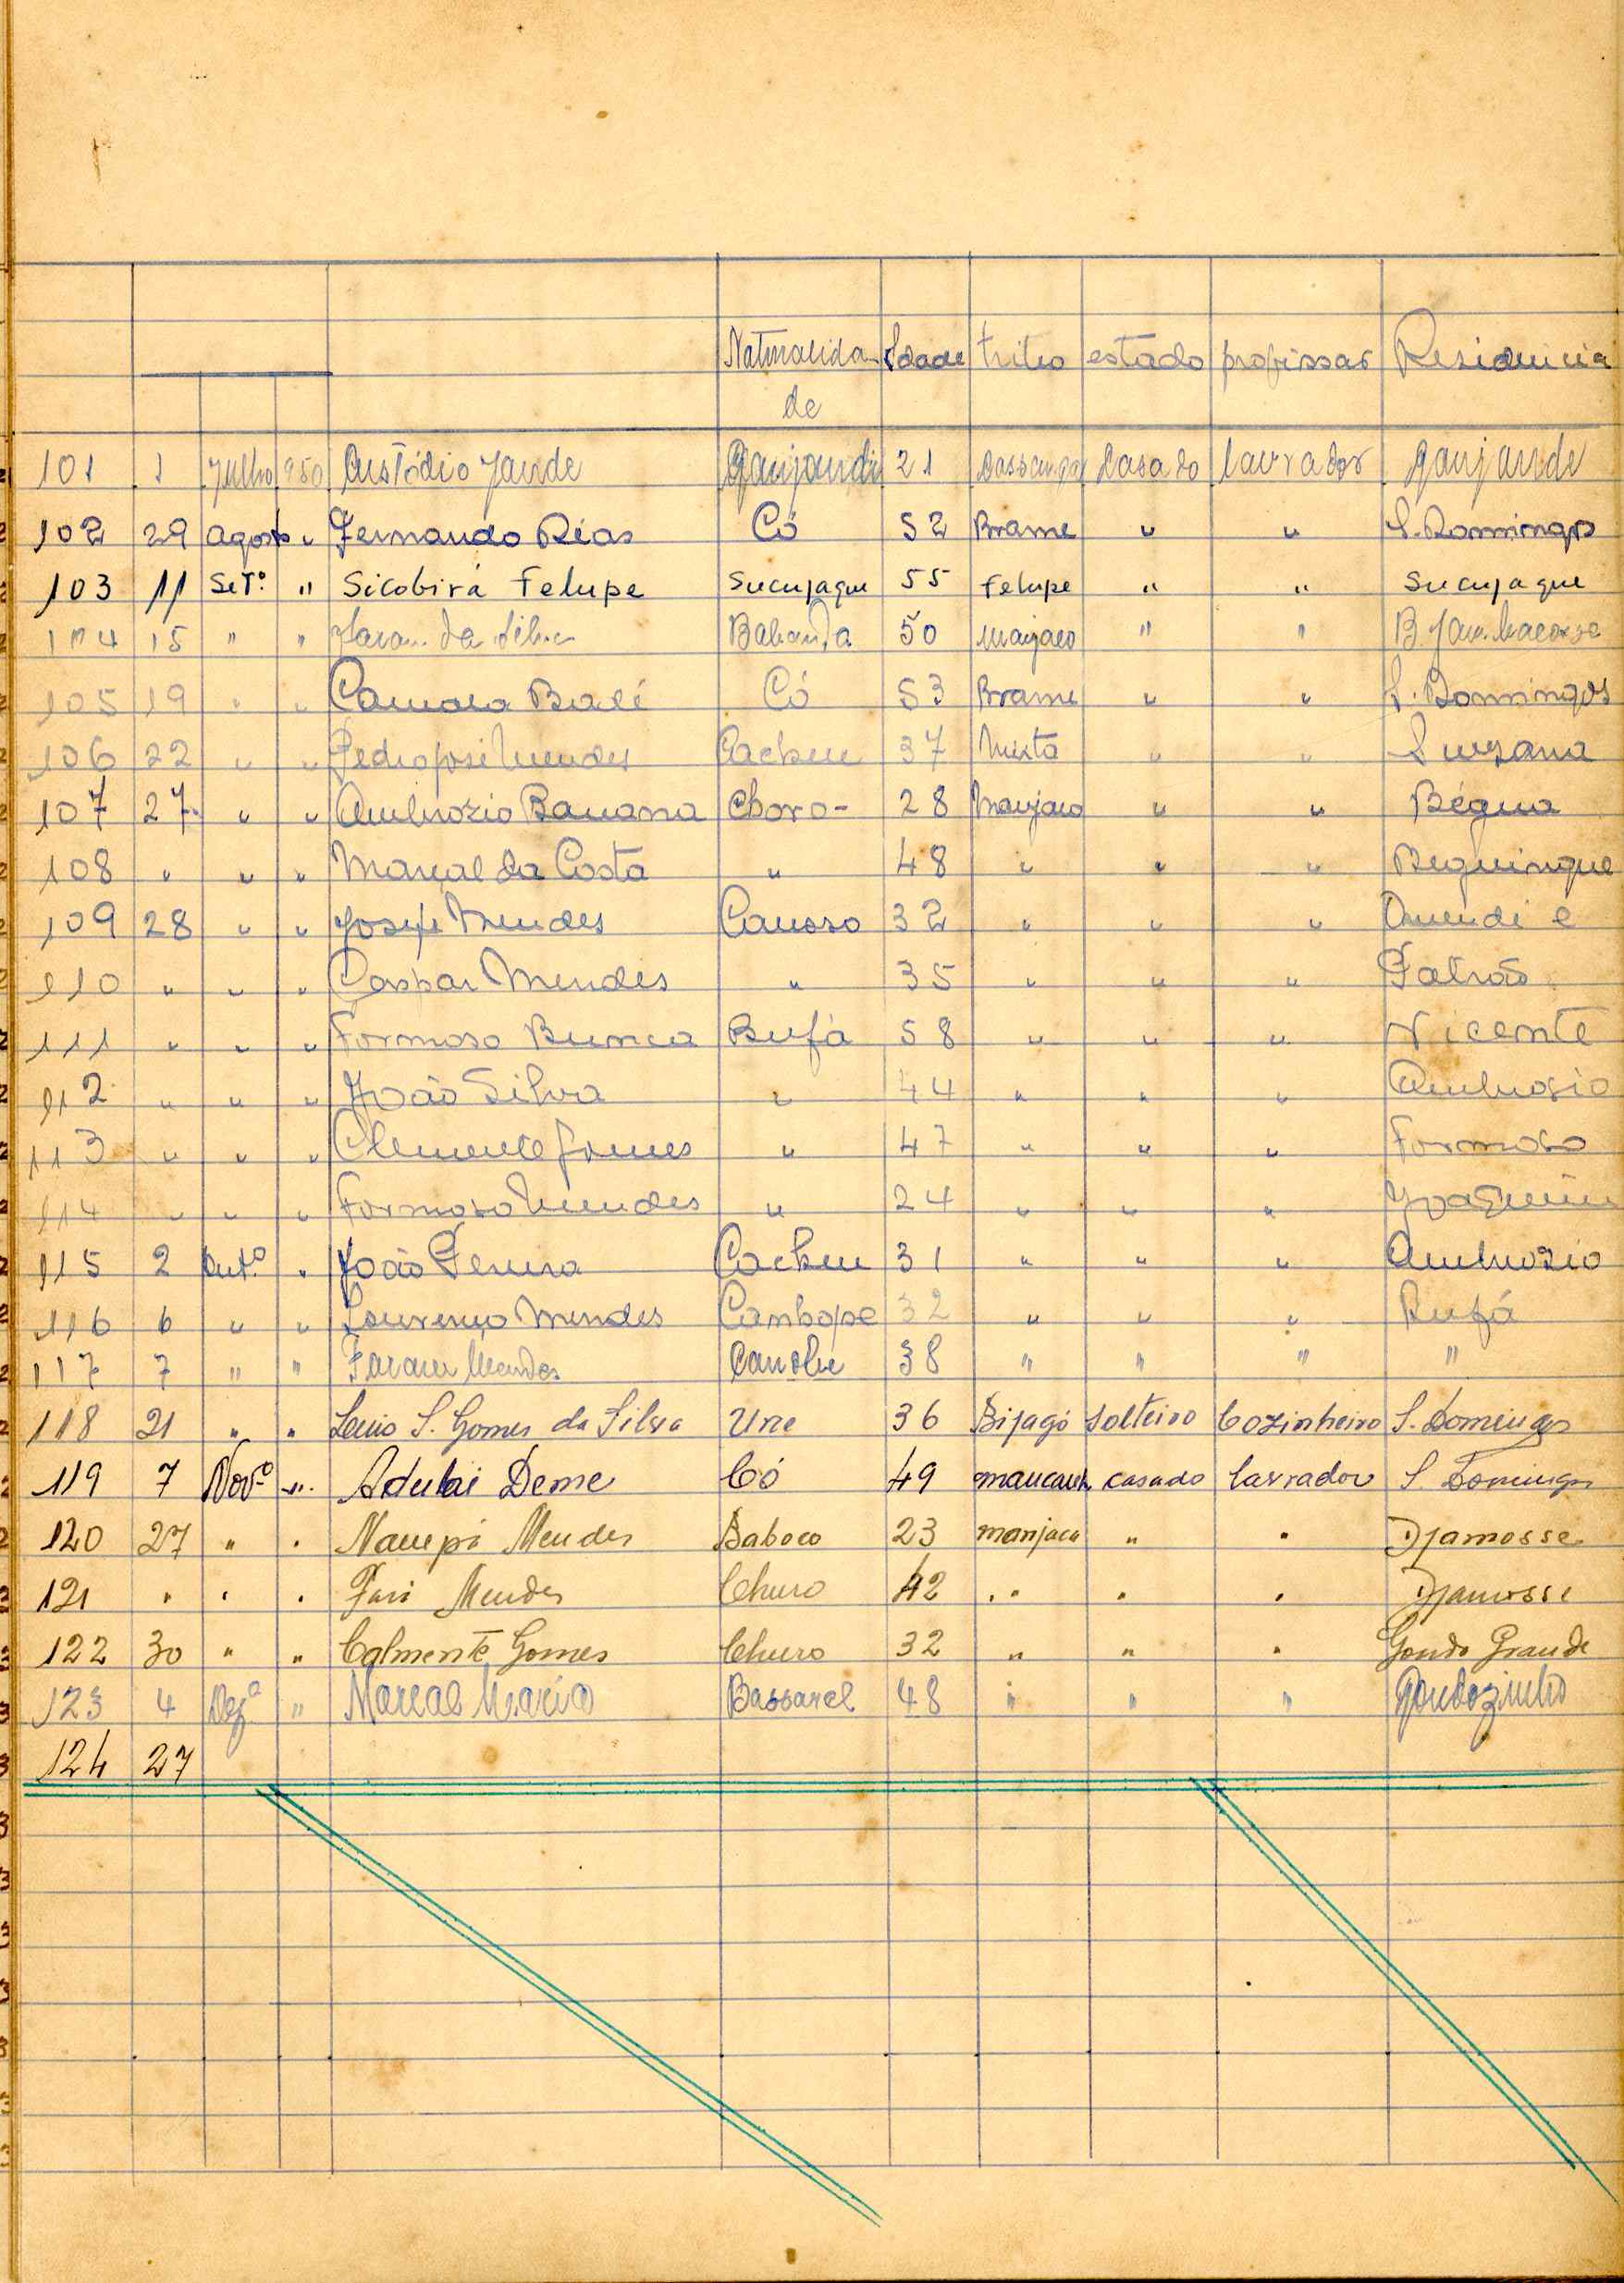 Naturalida- Idade tribo estado profissão Residencia
de
101 1 Julho 950 Custódio Jande Ganjandi 21 Cassanga Casado lavrador Ganjande
102 29 Agosto " Fernando Dias Có 52 Brame " " S. Domingos
103 11 Set.º " Sicobirá Felupe Sucujaque 55 Felupe " " Sucujaque
104 15 " " da Silva Babanda 50 Manjaco " "
105 19 " " Camara Balé Có 53 Brame " " S. Domingos
106 22 " " Pedro José Mendes Cacheu 37 Mixta " " Suzana
107 27 " " Ambrozio Banana Choro- 28 Manjaco " " Bégua
108 " " " Marcal da Costa " 48 " " " Beguingue
109 28 " " Josefe Mendes Canoso 32 " " "
110 " " " Caspar Mendes " 35 " " " Patrão
111 " " " Formoso Bunca Bufa 58 " " " Vicente
112 " " " João Silva " 44 " " " Ambrosio
113 " " " Clemente Gomes " 47 " " " Formoso
114 " " " Formoso Mendes " 24 " " " Joaquim
115 2 Out.º " João Pereira Cacheu 31 " " " Ambrozio
116 6 " " Lourenço Mendes Canhope 32 " " " Bufá
117 7 " " Mendes 38 " " " "
118 21 " " Luis S. Gomes da Silva Une 36 Bijagó Solteiro Cozinheiro S. Domingos
119 7 Nov.º " Adulai Deme Có 49 casado lavrador S. Domingos
120 27 " " Naupá Mendes Baboco 23 manjaca " " Djamosse
121 " " " Mendes Churo 42 " " " Djamosse
122 30 " " Calmente Gomes Churo 32 " " " Gondo Grande
123 4 Dez.º " Marcal Maria Bassarel 48 " " " Gondozinho
124 27